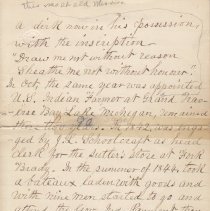 a dirk now in his possession,
with the inscription
Draw me not without reason
Sheathe me not without honour".
In Oct, the same year was appointed
U.S. Indian Farmer at Grand Trav-
erse Bay Lake Michigan, remained
there two years. In 1842, was enga-
ged by J.R. Schoolcraft as head
clerk for the Sutler's store at Fort
Brady. In the summer of 1844, took
a bateaux laden with goods and
with nine men started to go and
attend the